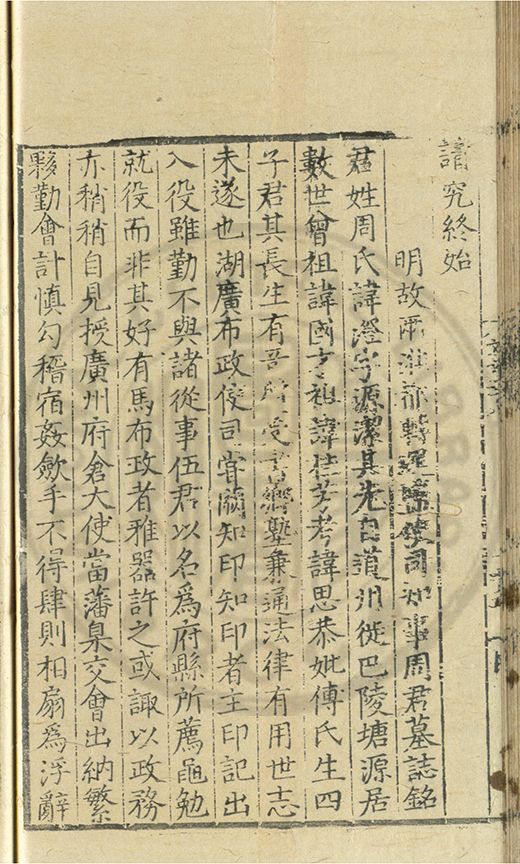 讀究終始
明故兩淮都轉運鹽使司知事周君墓誌銘
君姓周氏諱澄字源潔其先自道州徙巴陵塘源居
數世曾祖諱國才祖諱仕考諱思恭妣傅氏生四
子君其長生有受書塾兼通法律有用世志
未遂也湖廣布政使司嘗闕知印知印者主印記出
入役雖勤不與諸從事伍君以名為府縣所薦黽勉
就役而非其好有馬布政者雅器許之或諏以政務
亦稍稍自見授廣州府倉大使當藩臬交會出納繁
夥勤會計慎勾稽宿姦歛手不得肆則相扇為浮辭